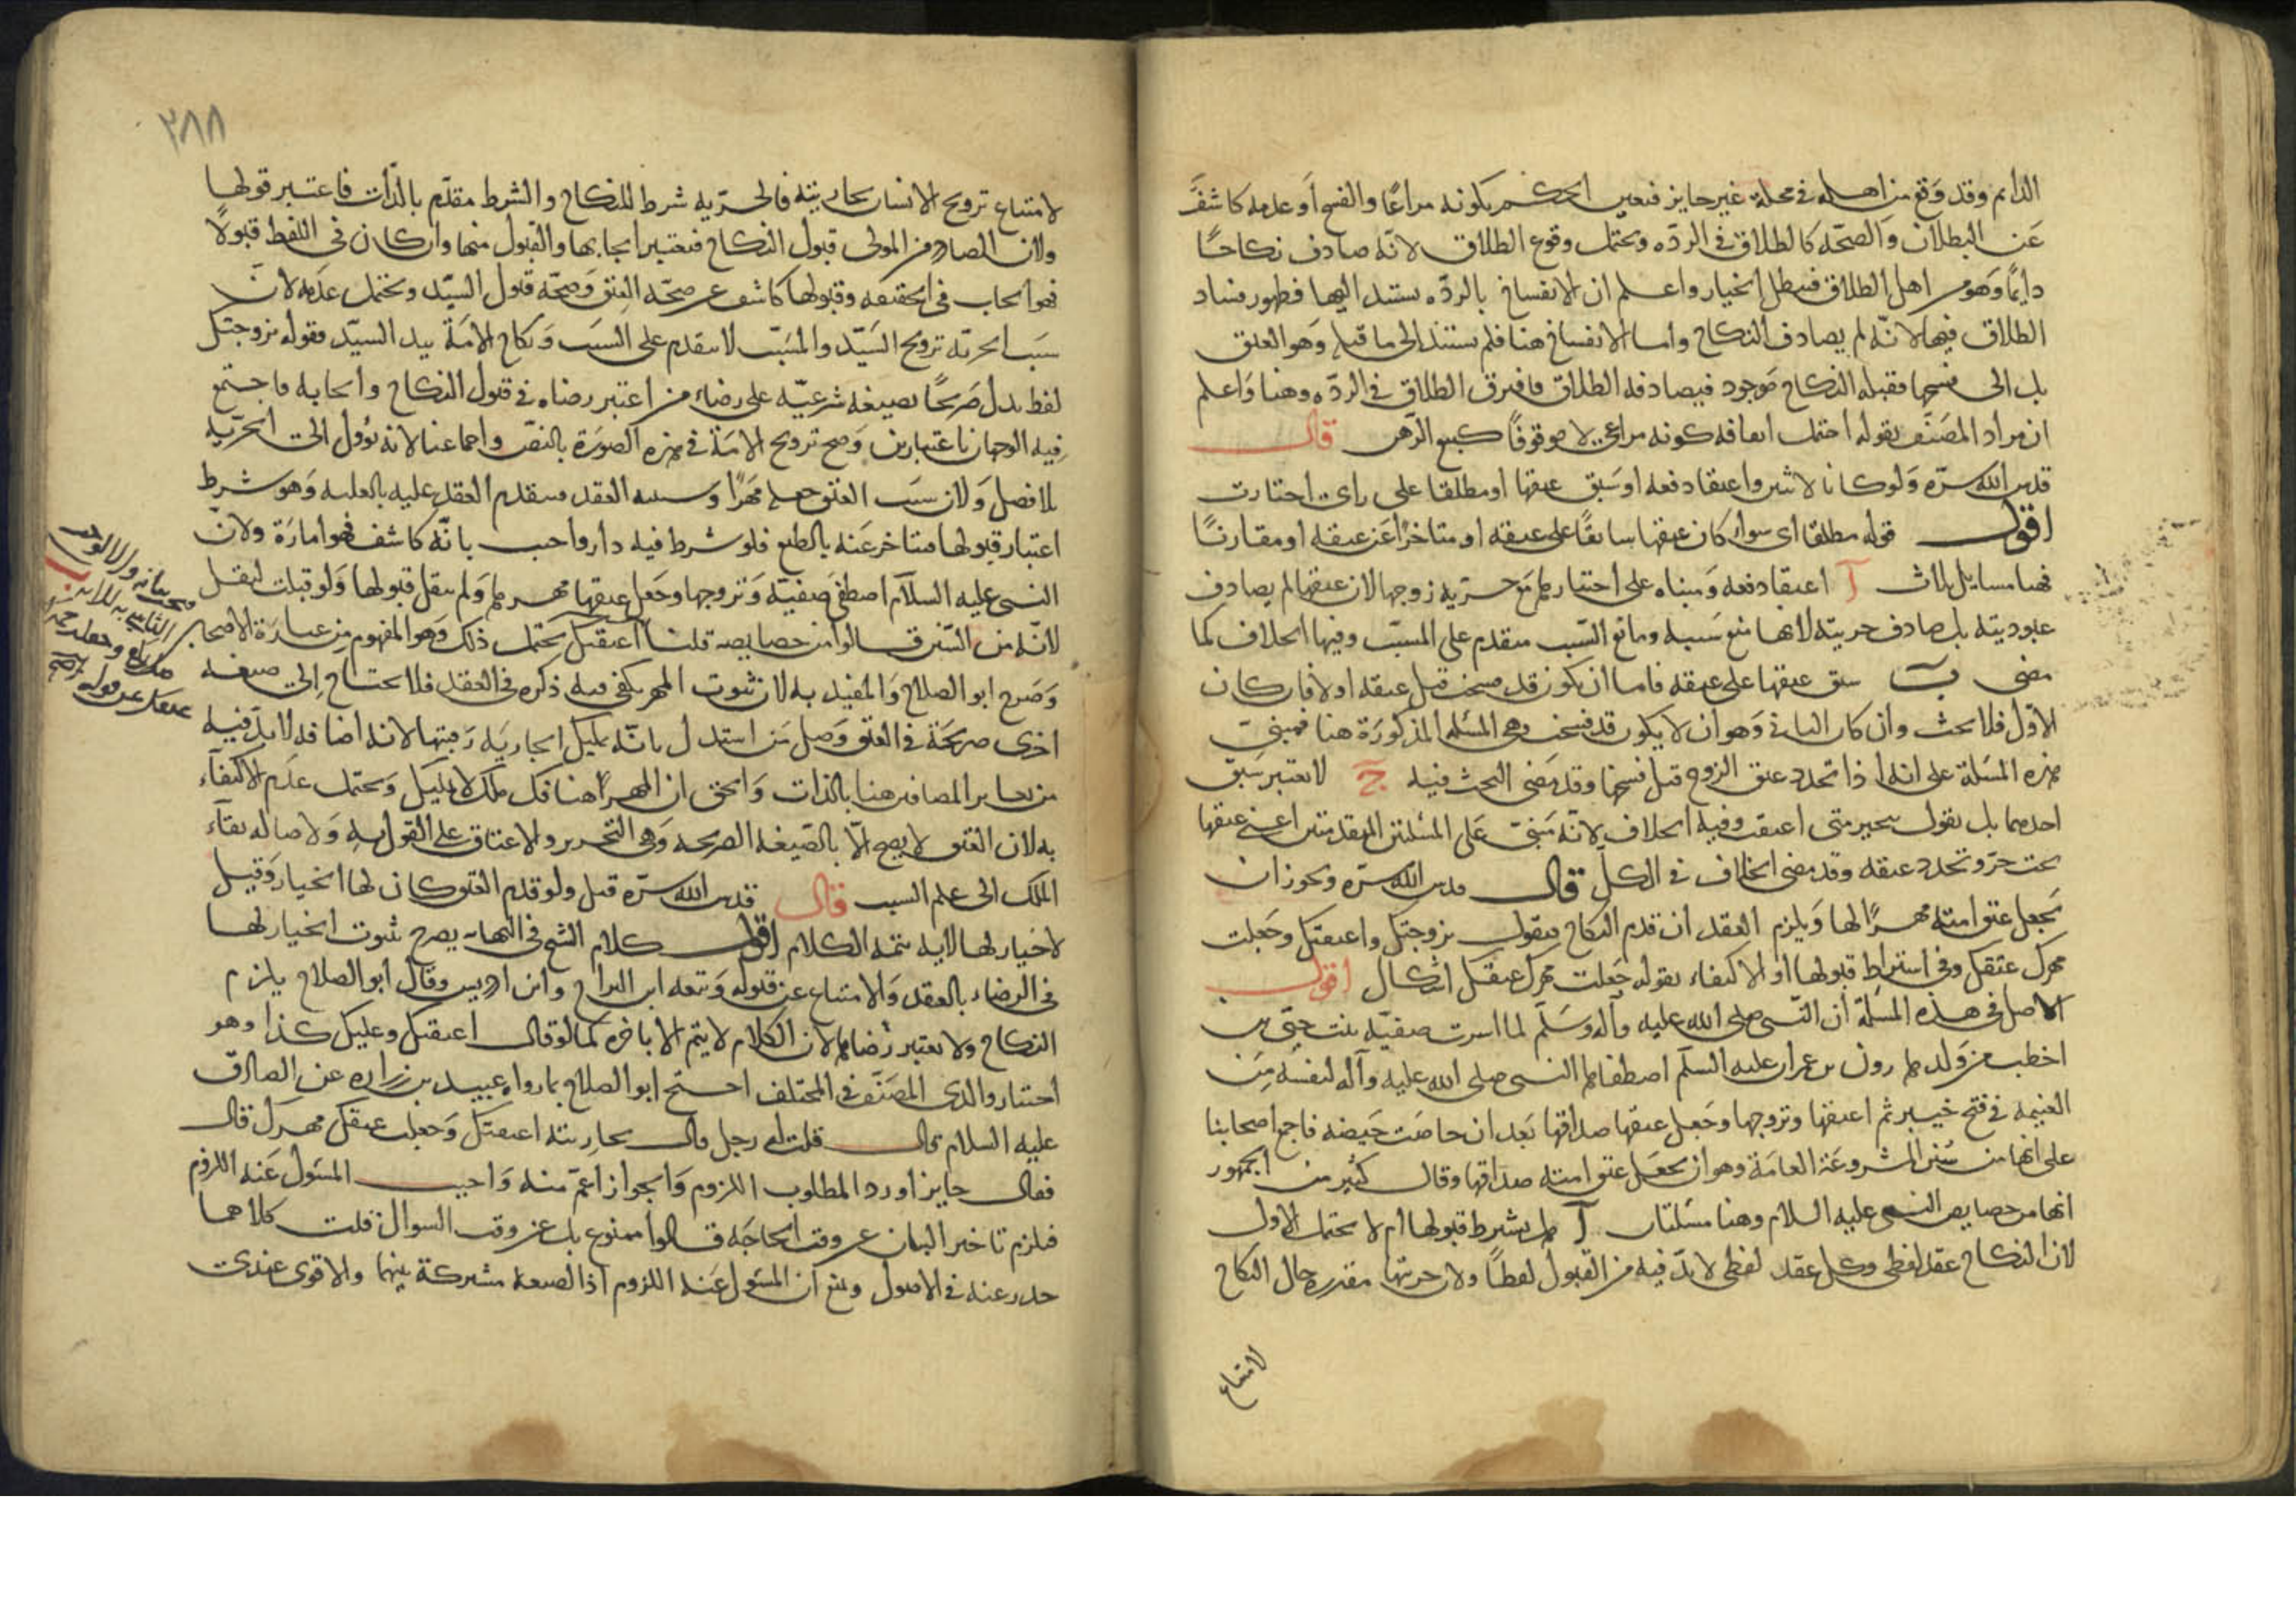 الدايم وقد وقع من اهله في محله غير جايز فتعين الحكم بكونه مراعا والفسخ او عدمه كاشف
عن البطلان والصحه كالطلاق في الرده ويحتمل وقوع الطلاق لانه صادف نكاحا
دايما وهو من اهل الطلاق فيبطل الخيار واعلم ان الانفساخ بالرده يستند اليها فظهور فساد
الطلاق فيها لانه لم يصادف النكاح واما الانفساخ هنا فلم يستند الى ما قبله وهو العتق
بل الى فسخها فقبله النكاح موجود فيصادفه الطلاق فافترق الطلاق في الرده وهنا واعلم
ان مراد المصنف بقوله احتمل ايقافه كونه مراعى لا موقوفا كبيع الرهن قال
قدس الله سره ولو كانا لاثنين واعتقا دفعه او سبق عتقها او مطلقا على راى اختارت
اقول قوله مطلقا اى سواء كان عتقها سابقا على عتقه او متاخرا عن عتقه او مقارنا
فهنا مسايل ثلاث آ اعتقا دفعه ومبناه على اختيارها مع حرية زوجها لان عتقها لم يصادف
عبوديته بل صادف حريته لانها مع سببه ومانع السبب متقدم على المسبب وفيها الخلاف كما
مضى ب سبق عتقها على عتقه فاما ان يكون قد فسخت قبل عتقه اولا فان كان
الاول فلا بحث وان كان الثاني وهو ان لا يكون قد فسخت وهي المسئله المذكورة هنا فمبنى
هذه المسئلة على انه اذا تجدد عتق الزوج قبل فسخها وقد مضى البحث فيه ج لا يعتبر سبق
احدهما بل نقول تتخير متى اعتقت وفيه الخلاف لانه مبنى على المسئلتين المتقدمتين اعنى عتقها
تحت حر وتجدد عتقه وقد مضى الخلاف في الكل قال قدس الله سره ويجوز ان
يجعل عتق امته مهرا لها ويلزم العقد ان قدم النكاح فيقول تزوجتك واعتقتك وجعلت
مهرك عتقك وفي اشتراط قبولها او الاكتفاء بقوله جعلت مهرك عتقك اشكال اقول
الاصل في هذه المسئلة ان النبي صلى الله عليه وآله وسلم لما اسرت صفيه بنت حيى بن
اخطب من ولد هارون بن عمران عليه السلم اصطفاها النبي صلى الله عليه وآله لنفسه من
الغنيمه في فتح خيبر ثم اعتقها وتزوجها وجعل عتقها صداقها بعد ان حاضت حيضه فاجمع اصحابنا
على انها من السنن المشروعة العامة وهو ان يجعل عتق امته صداقها وقال كثير من الجمهور
انها من خصايص النبي عليه السلام وهنا مسئلتان آ هل يشترط قبولها ام لا يحتمل الاول
لان النكاح عقد لفظى وكل عقد لفظى لا بد فيه من القبول لفظا ولان حريتها مقدره حال النكاح
لامتناع
٢٨٨
لامتناع تزويج الانسان بجاريته فالحريه شرط للنكاح والشرط مقدم بالذات فاعتبر قولها
ولان الصادر من المولى قبول النكاح فيعتبر ايجابها والقبول منها وان كان في اللفظ قبولا
فهو ايجاب في الحقيقه وقبولها كاشف عن صحه العتق وصحه قبول السيد ويحتمل عدمه لان
سبب الحرية تزويج السيد والمسبب لا يتقدم على السبب ونكاح الامة بيد السيد فقوله تزوجتك
لفظ يدل صريحا بصيغه شرعيه على رضاء من اعتبر رضاه في قبول النكاح وايجابه فاجتمع
فيه الوجهان باعتبارين وصح تزويج الامة في هذه الصورة بالنص واجماعنا لانه يؤول الى الحريه
بلا فصل ولان سبب العتق جعله مهرا وسببه العقد فيتقدم العقد عليه بالعليه وهو شرط
اعتبار قبولها فيتاخر عنه بالطبع فلو شرط فيه دار واجيب بانه كاشف فهو امارة ولان
النبي عليه السلام اصطفى صفيه وتزوجها وجعل عتقها مهرها ولم ينقل قبولها ولو قبلت لنقل
لانه من السنن قالوا من خصايصه قلنا اعتقتك يحتمل ذلك وهو المفهوم من عبارة الاصحاب
وصرح ابو الصلاح والمفيد به لان ثبوت المهر يكفي فيه ذكره في العقد فلا يحتاج الى صيغه
اخرى صريحة في العتق وصل من استدل بانه تمليك الجاريه رقبتها لانه اضافه لا بد فيه
من تغاير المضافين هنا بالذات والحق ان المهر هنا فك ملك لا تمليك ويحتمل عدم الاكتفاء
به لان العتق لا يصح الا بالصيغه الصريحه وهي التحرير والاعتاق على القول به ولاصاله بقاء
الملك الى علم السبب قال قدس الله سره قيل ولو قدم العتق كان لها الخيار وقيل
لا خيار لها لانه تتمه الكلام اقول كلام الشيخ في النهايه يصرح بثبوت الخيار لها
في الرضاء بالعقد والامتناع عن قبوله وتبعه ابن البراج وابن ادريس وقال ابو الصلاح يلزم
النكاح ولا يعتبر رضاها لان الكلام لا يتم الا باخره كما لو قال اعتقتك وعليك كذا وهو
اختيار والدى المصنف في المختلف احتج ابو الصلاح بما رواه عبيد بن زراره عن الصادق
عليه السلام قال قلت له رجل قال بجاريته اعتقتك وجعلت عتقك مهرك قال
فقال جايز اورد المطلوب اللزوم والجواز اعم منه واجيب المسئول عنه اللزوم
فيلزم تاخير البيان عن وقت الحاجه قالوا ممنوع بل عن وقت السوال قلت كلاهما
حذر عنه في الاصول ومنع ان المسئول عنه اللزوم اذ الصيغه مشتركة بينهما والاقوى عندى